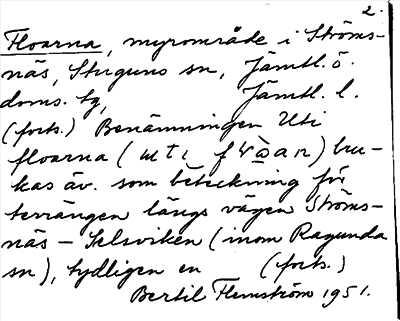 2.
Floarna, myrområde i Ströms-
näs, Stuguns sn, Jämtl. ö.
doms. tg, Jämtl. l.
(forts.) Benämningen Uti
floarna (
) bru-
kas äv. som beteckning för
terrängen längs vägen Ströms-
näs – Selsviken (inom Ragunda
sn), tydligen en (forts.)
Bertil Flemström 1951.